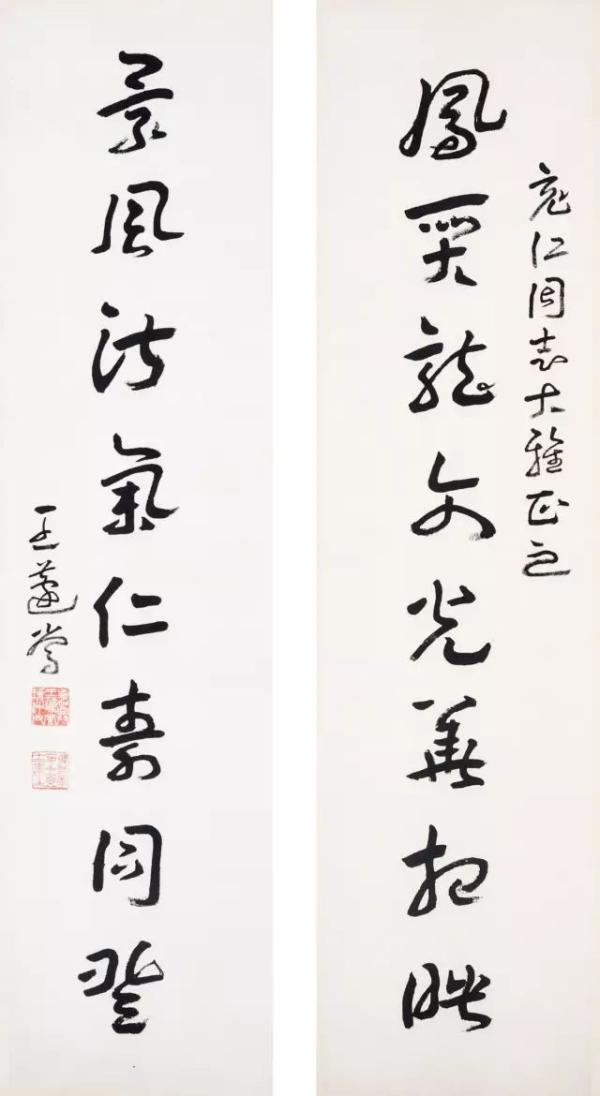 仁同志大雅正之
鳳龍文光華相映
景風淑氣仁壽同登
王蘧常